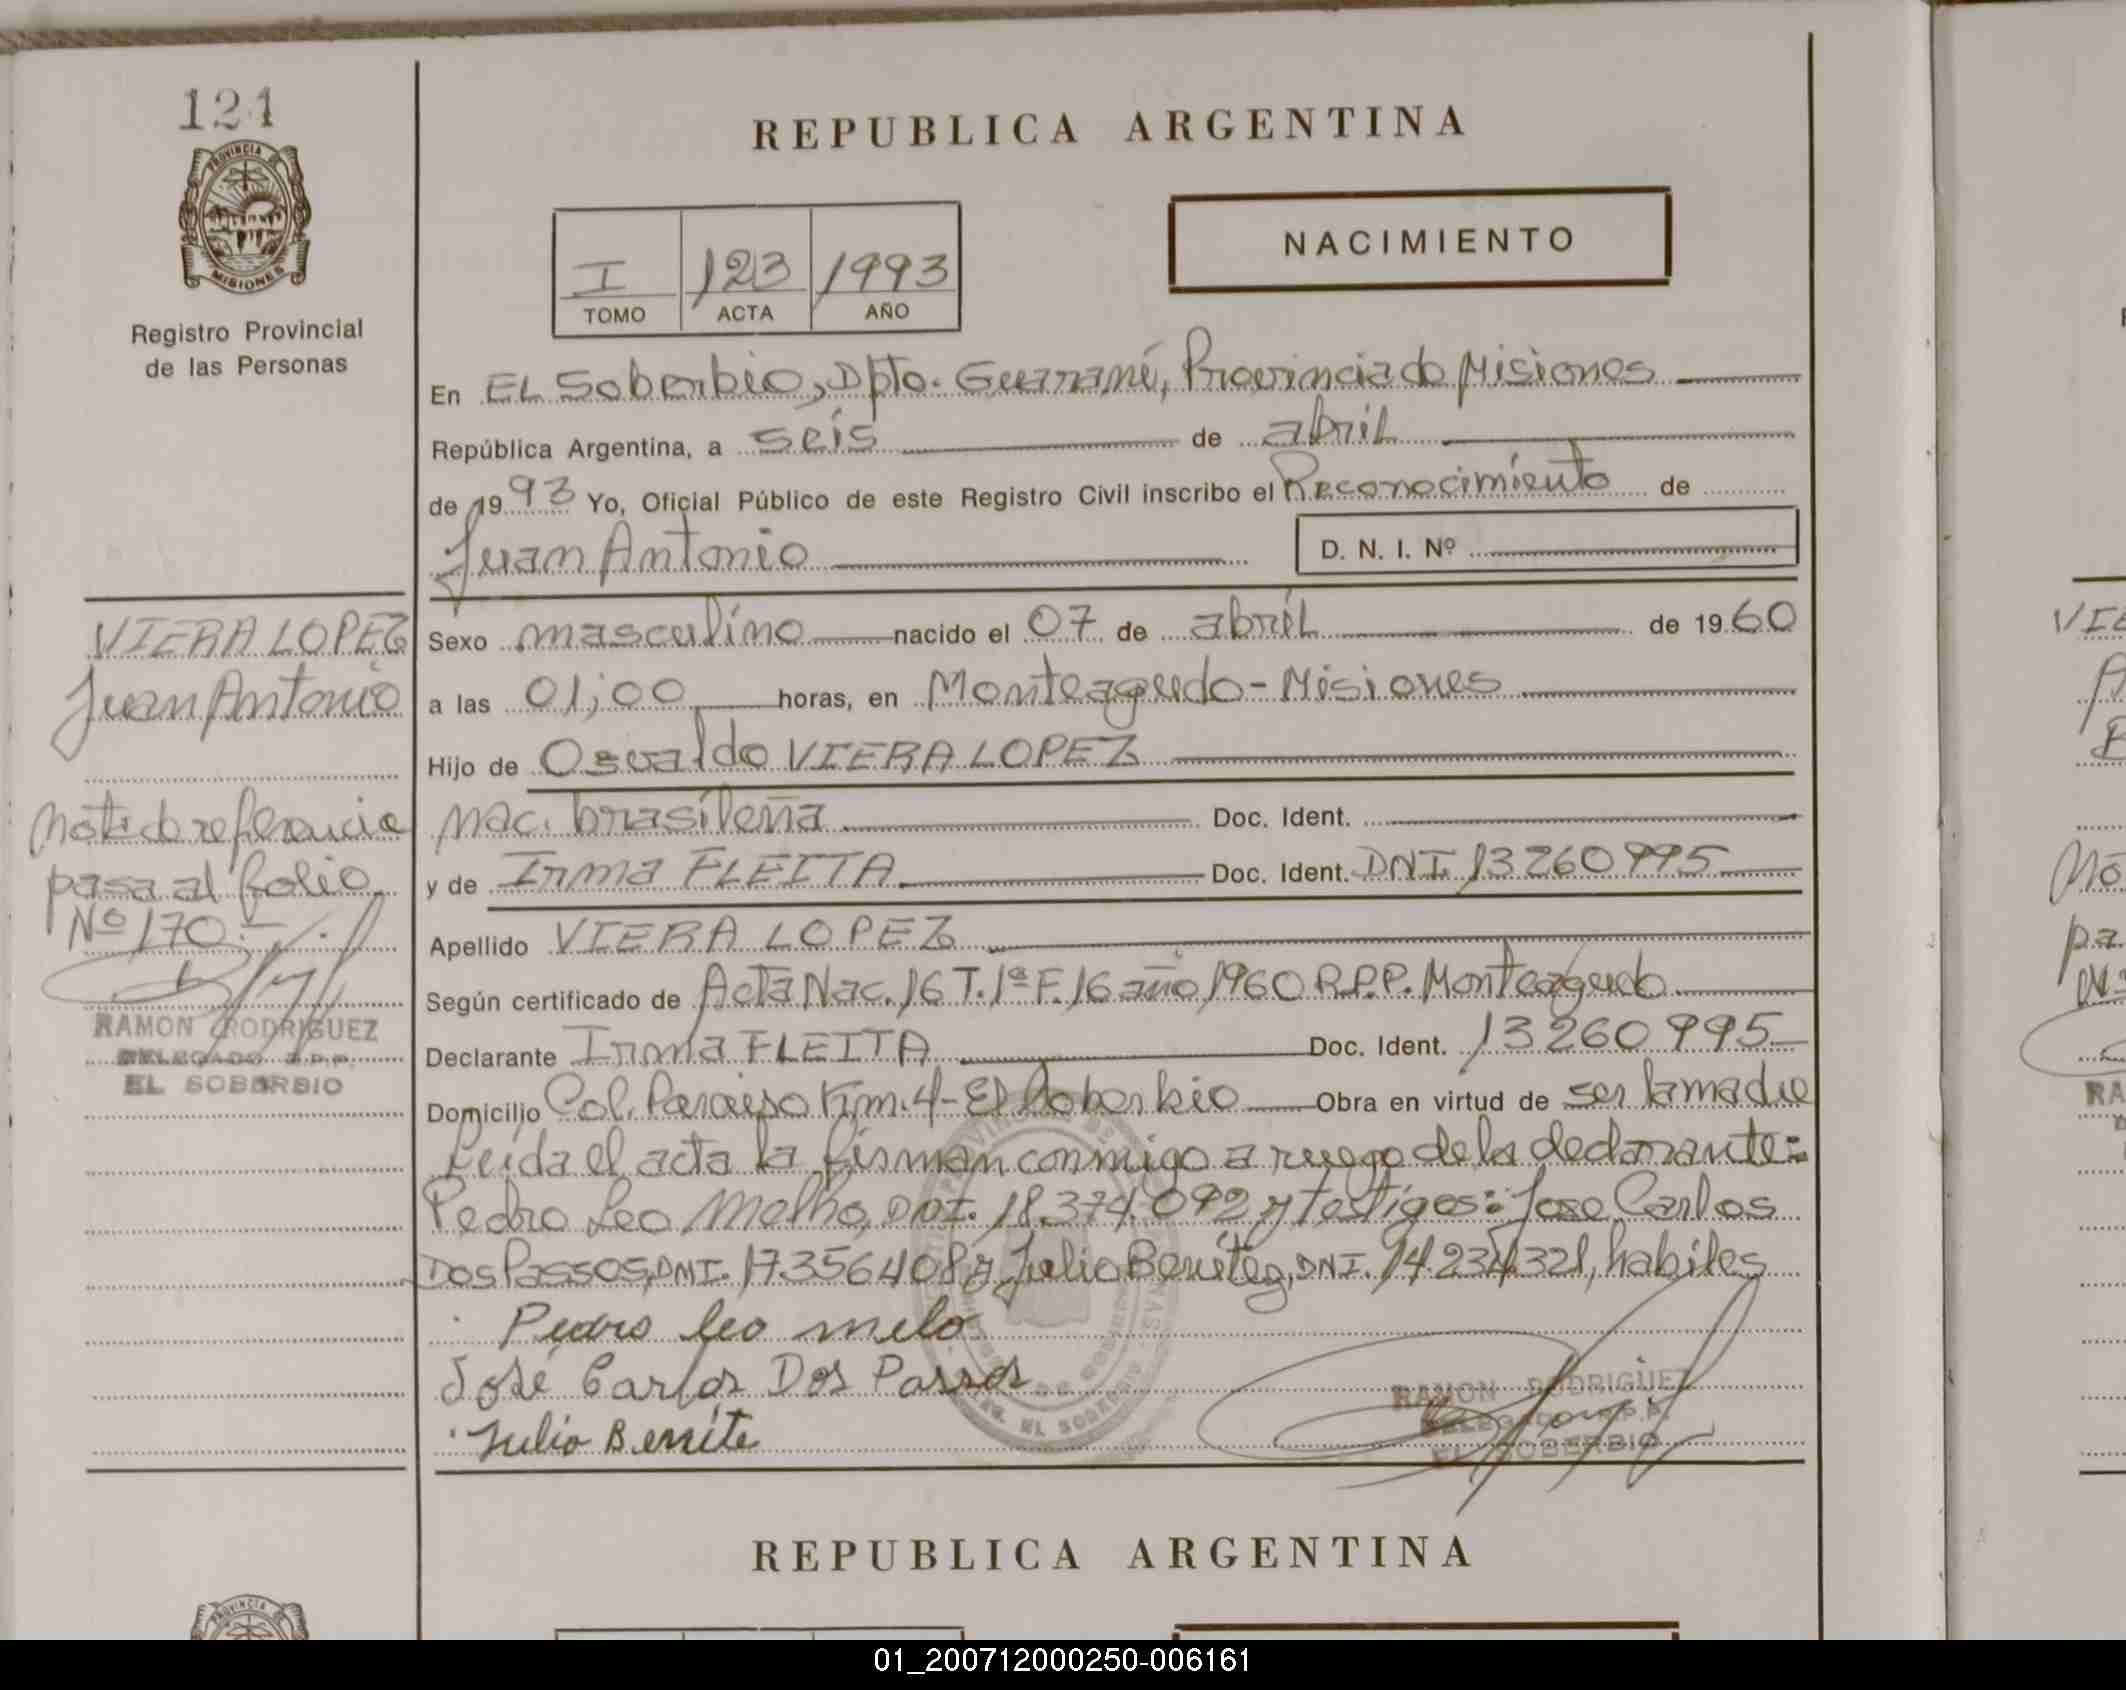 124
PROVINCIA DE
MISIONES
Registro Provincial
de las Personas
REPUBLICA ARGENTINA
I 123 1993
TOMO ACTA AÑO
NACIMIENTO
En EL Soberbio, Dpto. Guaraní, Provincia de Misiones
República Argentina, a seis de abril
de 1993 Yo, Oficial Público de este Registro Civil inscribo el Reconocimiento de
Juan Antonio
D. N. I. Nº
Sexo masculino nacido el 07 de abril de 1960
a las 01;00 horas, en Monteagudo - Misiones
Hijo de Osvaldo VIERA LOPEZ
nac. brasileña Doc. Ident.
y de Irma FLEITA Doc. Ident. DNI. 13260995
Apellido VIERA LOPEZ
Según certificado de Acta Nac. 16 T. 1º F. 16 año 1960 R.P.P. Monteagudo
Declarante Irma FLEITA Doc. Ident. 13260995
Domicilio Col. Paraiso Km. 4 - El Soberbio Obra en virtud de ser la madre
Leída el acta la firman conmigo a ruego de la declarante:
Pedro Leo Melho, DNI. 18.374.092 y testigos: Jose Carlos
Dos Passos, DNI. 17.356408 y Julio Benitez, DNI. 14.234.321, habiles
Pedro leo melo
José Carlos Dos Passos
Julio Benite
RAMON RODRIGUEZ
DELEGADO R.P.P.
EL SOBERBIO
VIERA LOPEZ
Juan Antonio
Nota de referencia
pasa al folio
Nº 170.-
RAMON RODRIGUEZ
DELEGADO R.P.P.
EL SOBERBIO
REPUBLICA ARGENTINA
PROVINCIA DE
01_200712000250-006161